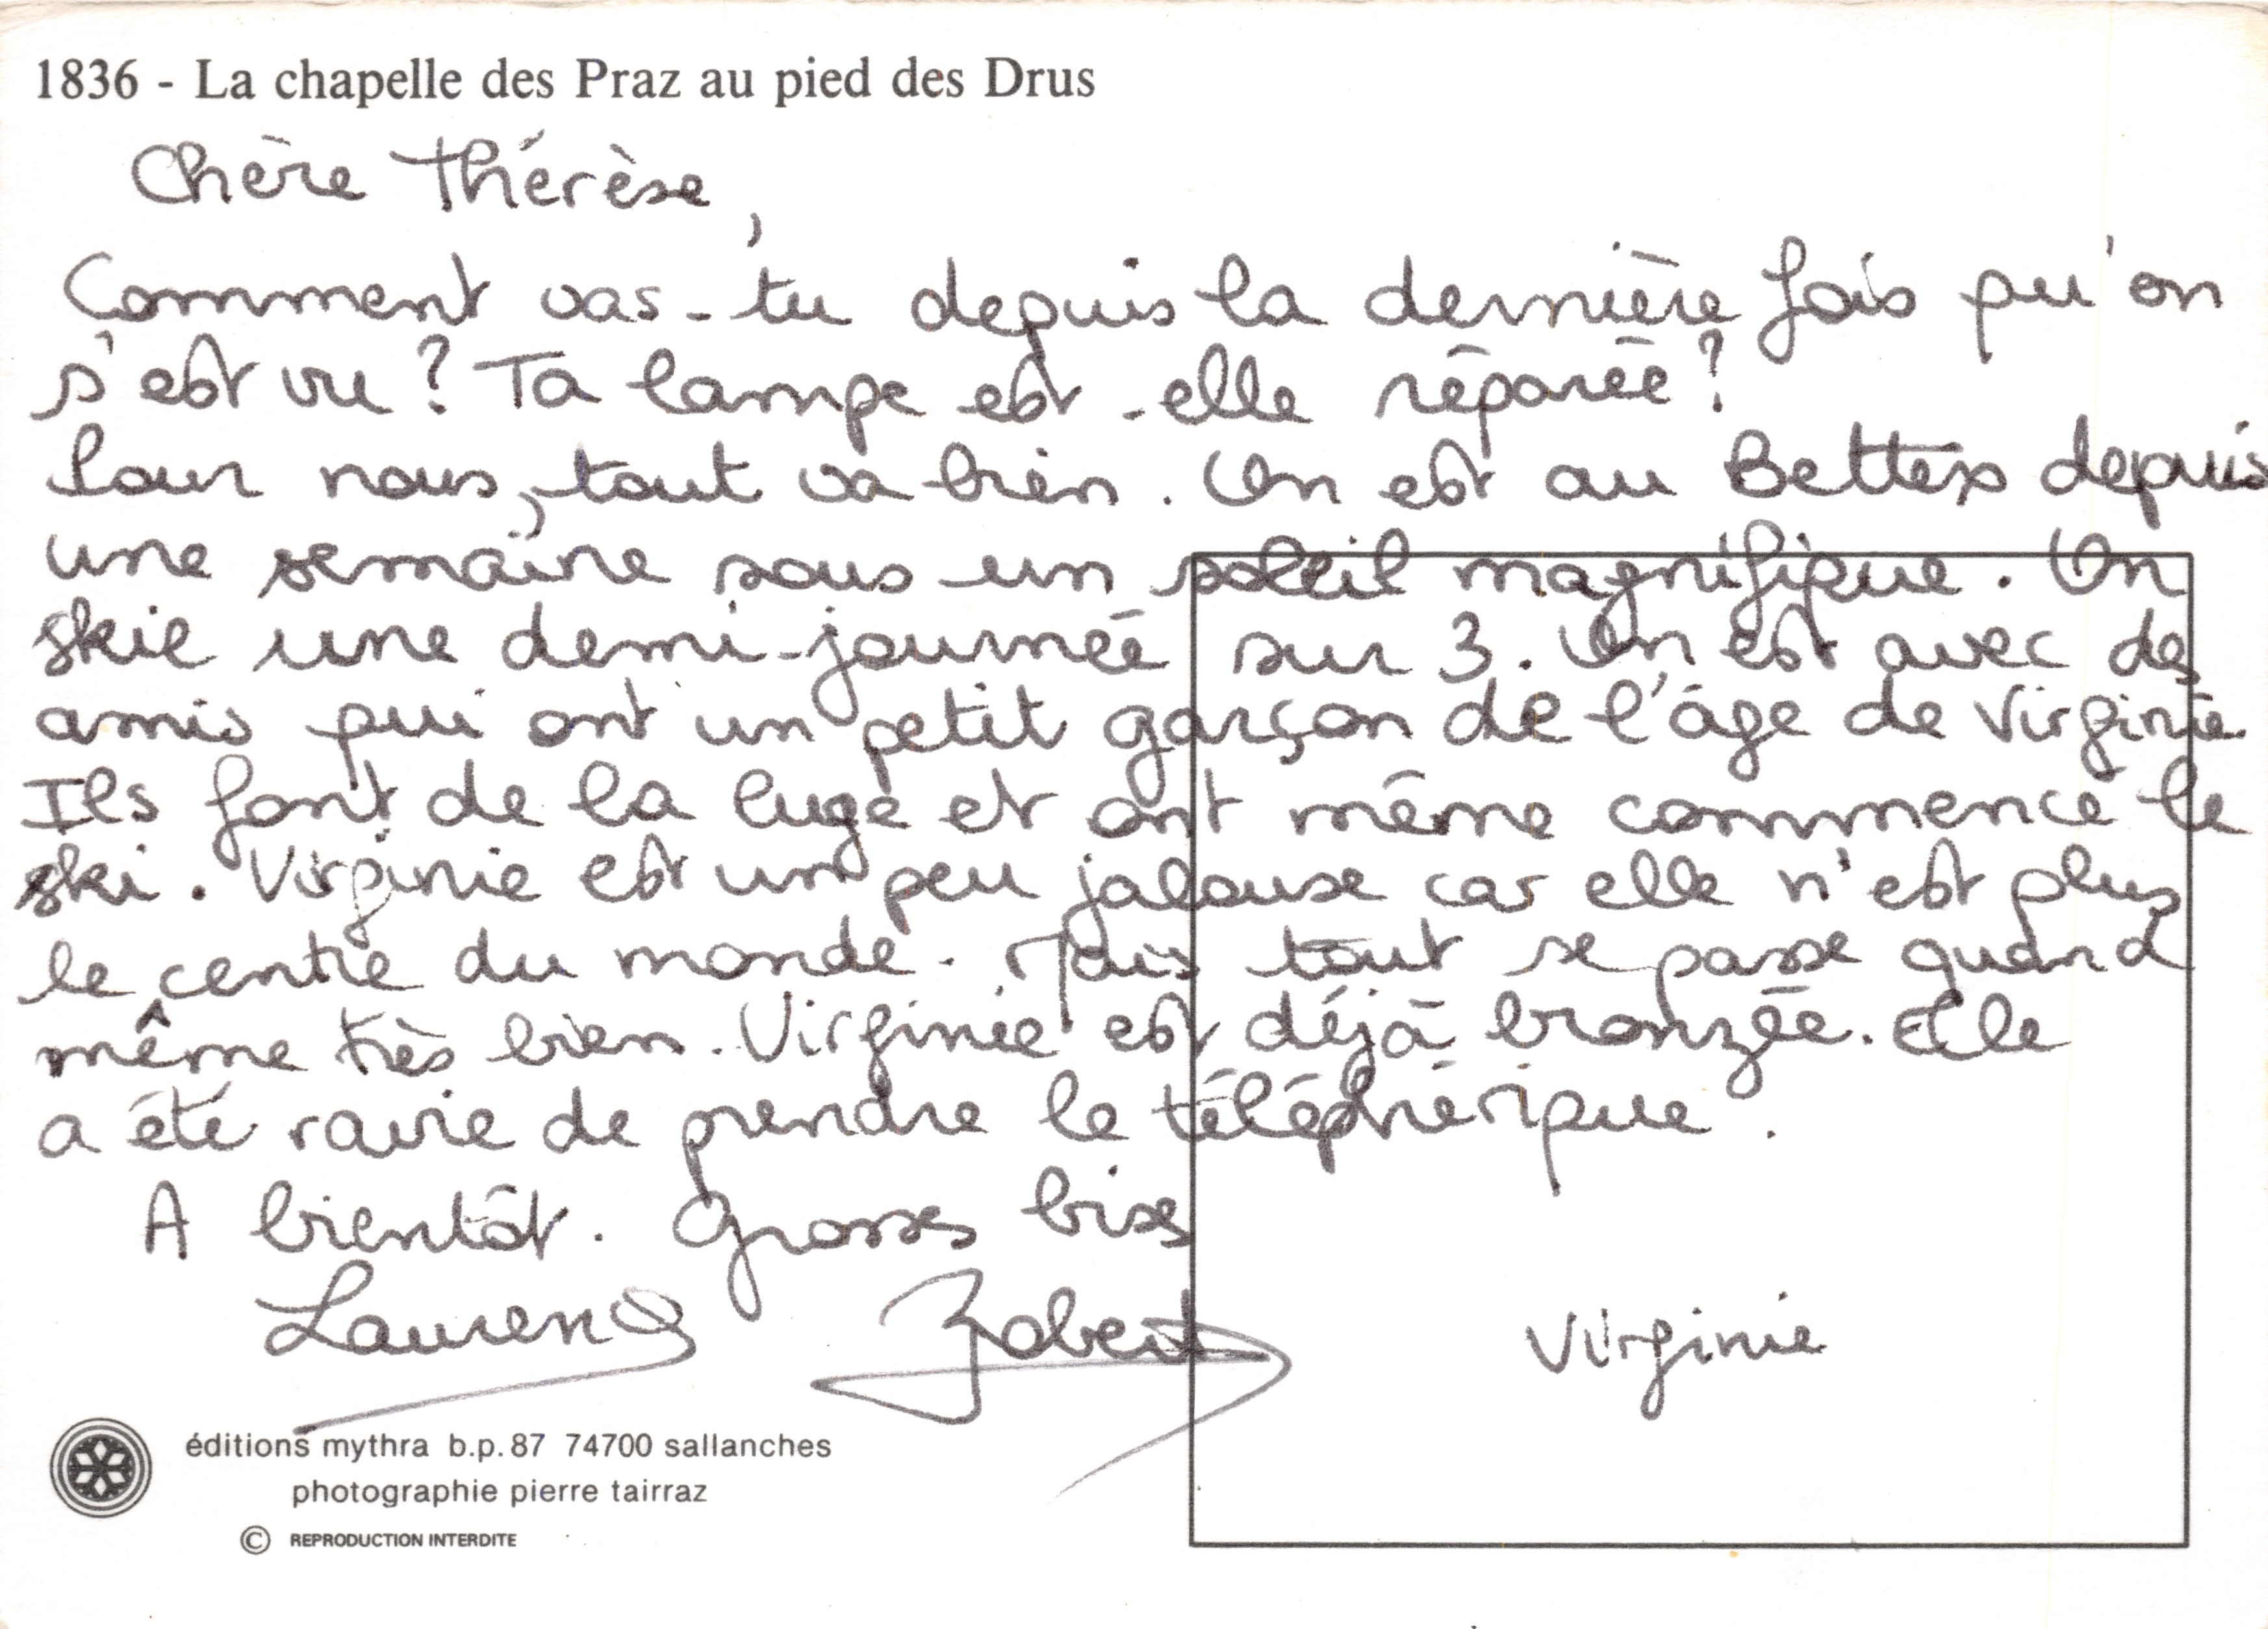 1836 - La chapelle des Praz au pied des Drus
Chère Thérèse,
Comment vas-tu depuis la dernière fois qu'on
s'est vu ? Ta lampe est-elle réparée ?
Pour nous, tout va bien. On est au Bettex depuis
une semaine sous un soleil magnifique. On
skie une demi-journée sur 3. On est avec des
amis qui ont un petit garçon de l'âge de Virginie.
Ils font de la luge et ont même commencé le
ski. Virginie est un peu jalouse car elle n'est plus
le centre du monde. Mais tout se passe quand
même très bien. Virginie est déjà bronzée. Elle
a été ravie de prendre le téléphérique.
A bientôt. Grosses bises
Laurence Robert Virginie
éditions mythra b.p. 87 74700 sallanches
photographie pierre tairraz
© REPRODUCTION INTERDITE